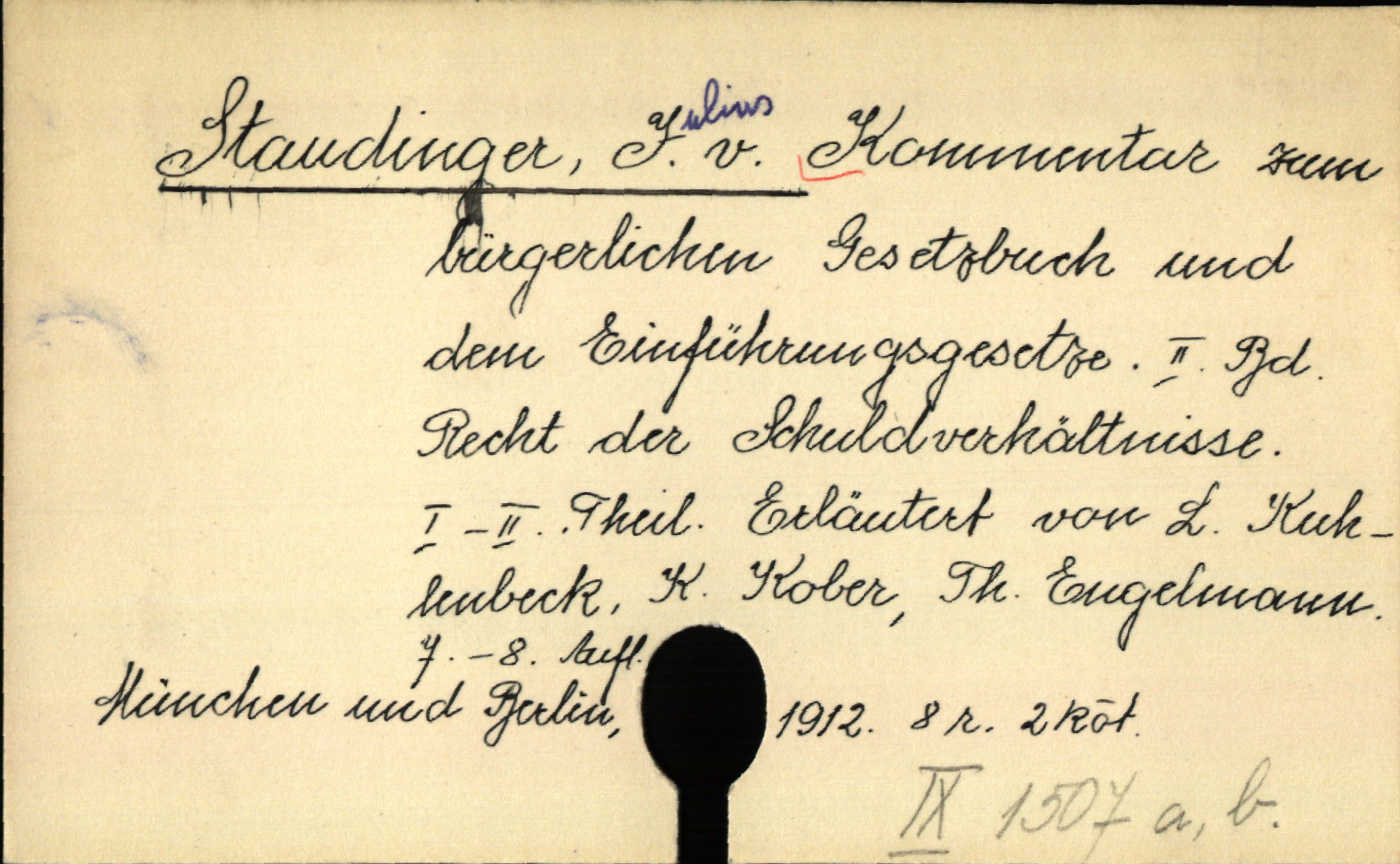 Staudinger, Julius v. Kommentar zum
bürgerlichen Gesetzbuch und
dem Einführungsgesetze. II. Bd.
Recht der Schuldverhältnisse.
I-II. Theil. Erläutert von L. Kuh-
lenbeck, K. Kober, Th. Engelmann.
7.-8. Aufl.
München und Berlin, 1912. 8 r. 2 köt.
IX 1507 a, b.